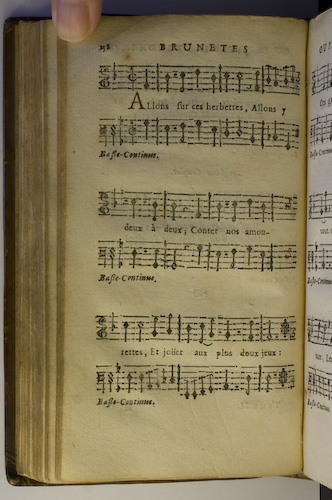 BRUNETES
ALlons sur ces herbettes, Allons y
Basse-Continue.
deux à deux; Conter nos amou-
Basse-Continue.
rettes, Et joüer aux plus doux jeux:
Basse-Continue.